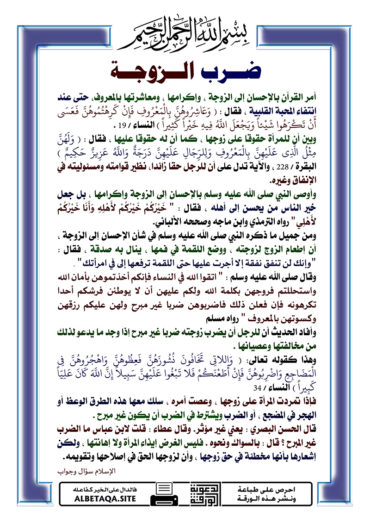 بسم الله الرحمن الرحيم
ضــرب الــزوجــة
أمر القرآن بالإحسان إلى الزوجة ، وإكرامها ، ومعاشرتها بالمعروف، حتى عند
انتفاء المحبة القلبية ، فقال : ( وَعَاشِرُوهُنَّ بِالْمَعْرُوفِ فَإِنْ كَرِهْتُمُوهُنَّ فَعَسَى
أَنْ تَكْرَهُوا شَيْئاً وَيَجْعَلَ اللَّهُ فِيهِ خَيْراً كَثِيراً ) النساء / 19 .
وبين أن للمرأة حقوقا على زوجها ، كما أن له حقوقا عليها ، فقال : ( وَلَهُنَّ
مِثْلُ الَّذِي عَلَيْهِنَّ بِالْمَعْرُوفِ وَلِلرِّجَالِ عَلَيْهِنَّ دَرَجَةٌ وَاللَّهُ عَزِيزٌ حَكِيمٌ )
البقرة / 228 ، والآية تدل على أن للرجل حقا زائدا، نظير قوامته ومسئوليته في
الإنفاق وغيره.
وأوصى النبي صلى الله عليه وسلم بالإحسان إلى الزوجة وإكرامها ، بل جعل
خير الناس من يحسن إلى أهله ، فقال : " خَيْرُكُمْ خَيْرُكُمْ لِأَهْلِهِ وَأَنَا خَيْرُكُمْ
لِأَهْلِي" رواه الترمذي وابن ماجه وصححه الألباني.
ومن جميل ما ذكره النبي صلى الله عليه وسلم في شأن الإحسان إلى الزوجة ،
أن إطعام الزوج لزوجته ، ووضع اللقمة في فمها ، ينال به صدقة ، فقال :
"وإنك لن تنفق نفقة إلا أجرت عليها حتى اللقمة ترفعها إلى في امرأتك" .
وقال صلى الله عليه وسلم : " اتقوا الله في النساء فإنكم أخذتموهن بأمان الله
واستحللتم فروجهن بكلمة الله ولكم عليهن أن لا يوطئن فرشكم أحدا
تكرهونه فإن فعلن ذلك فاضربوهن ضربا غير مبرح ولهن عليكم رزقهن
وكسوتهن بالمعروف " رواه مسلم
وأفاد الحديث أن للرجل أن يضرب زوجته ضربا غير مبرح إذا وجد ما يدعو لذلك
من مخالفتها وعصيانها .
وهذا كقوله تعالى: ( وَاللاتِي تَخَافُونَ نُشُوزَهُنَّ فَعِظُوهُنَّ وَاهْجُرُوهُنَّ فِي
الْمَضَاجِعِ وَاضْرِبُوهُنَّ فَإِنْ أَطَعْنَكُمْ فَلا تَبْغُوا عَلَيْهِنَّ سَبِيلاً إِنَّ اللَّهَ كَانَ عَلِيّاً
كَبِيراً ) النساء / 34
فإذا تمردت المرأة على زوجها ، وعصت أمره ، سلك معها هذه الطرق الوعظ أو
الهجر في المضجع ، أو الضرب ويشترط في الضرب أن يكون غير مبرح .
قال الحسن البصري : يعني غير مؤثر. وقال عطاء : قلت لابن عباس ما الضرب
غير المبرح ؟ قال : بالسواك ونحوه . فليس الغرض إيذاء المرأة ولا إهانتها ، ولكن
إشعارها بأنها مخطئة في حق زوجها ، وأن لزوجها الحق في إصلاحها وتقويمها.
الإسلام سؤال وجواب
احرص على طباعة
ونشر هذه الورقة
الدعوية
الورقة
فالدال على الخير كفاعله
ALBETAQA.SITE